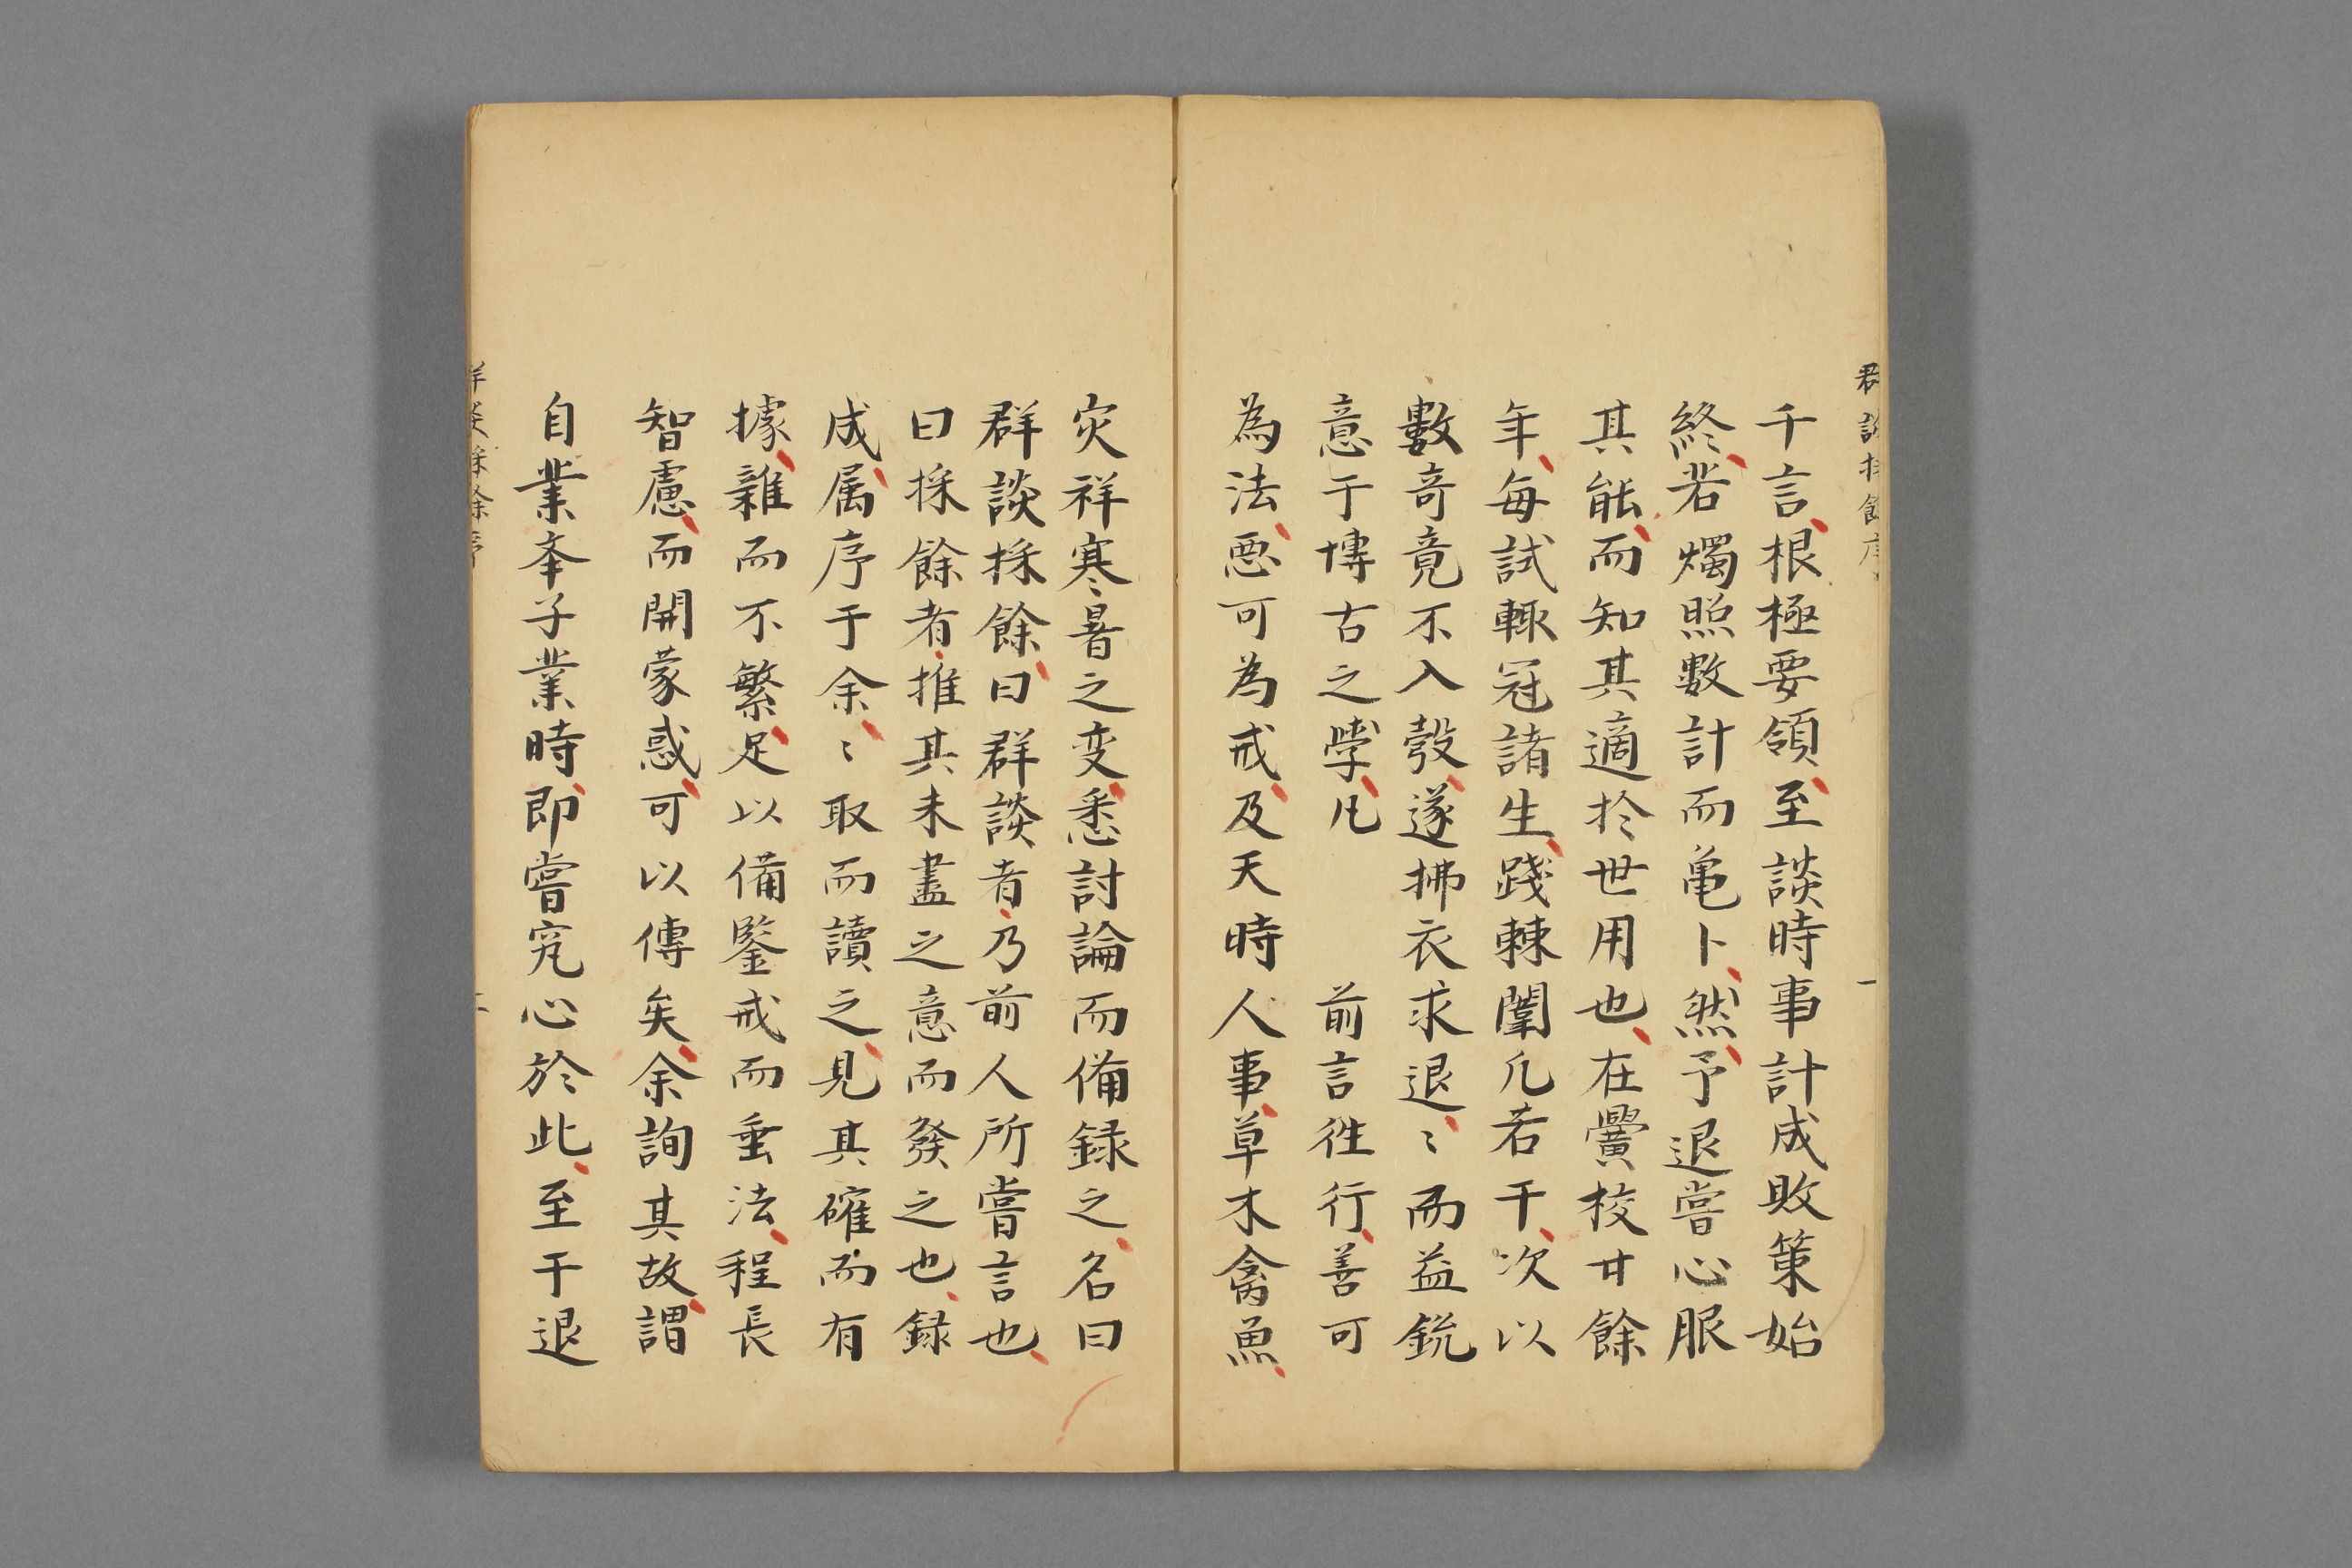 群談採餘序
一
千言根極要領至談時事計成敗策始
終若燭照數計而亀卜然予退嘗心服
其能而知其適扵世用也在黌校廿餘
年每試輙冠諸生踐棘闈凢若干次以
數奇竟不入彀遂拂衣求退〻而益銳
意于博古之學凡　　前言徃行善可
為法惡可為戒及天時人事草木禽魚
灾祥寒暑之变悉討論而備録之名曰
群談採餘曰群談者乃前人所嘗言也
曰採餘者推其未盡之意而發之也録
成属序于余〻取而讀之見其確而有
據雜而不繁足以備鑒戒而垂法程長
智慮而開蒙惑可以傳矣余詢其故謂
自業舉子業時即嘗究心於此至于退
群談採餘序
二